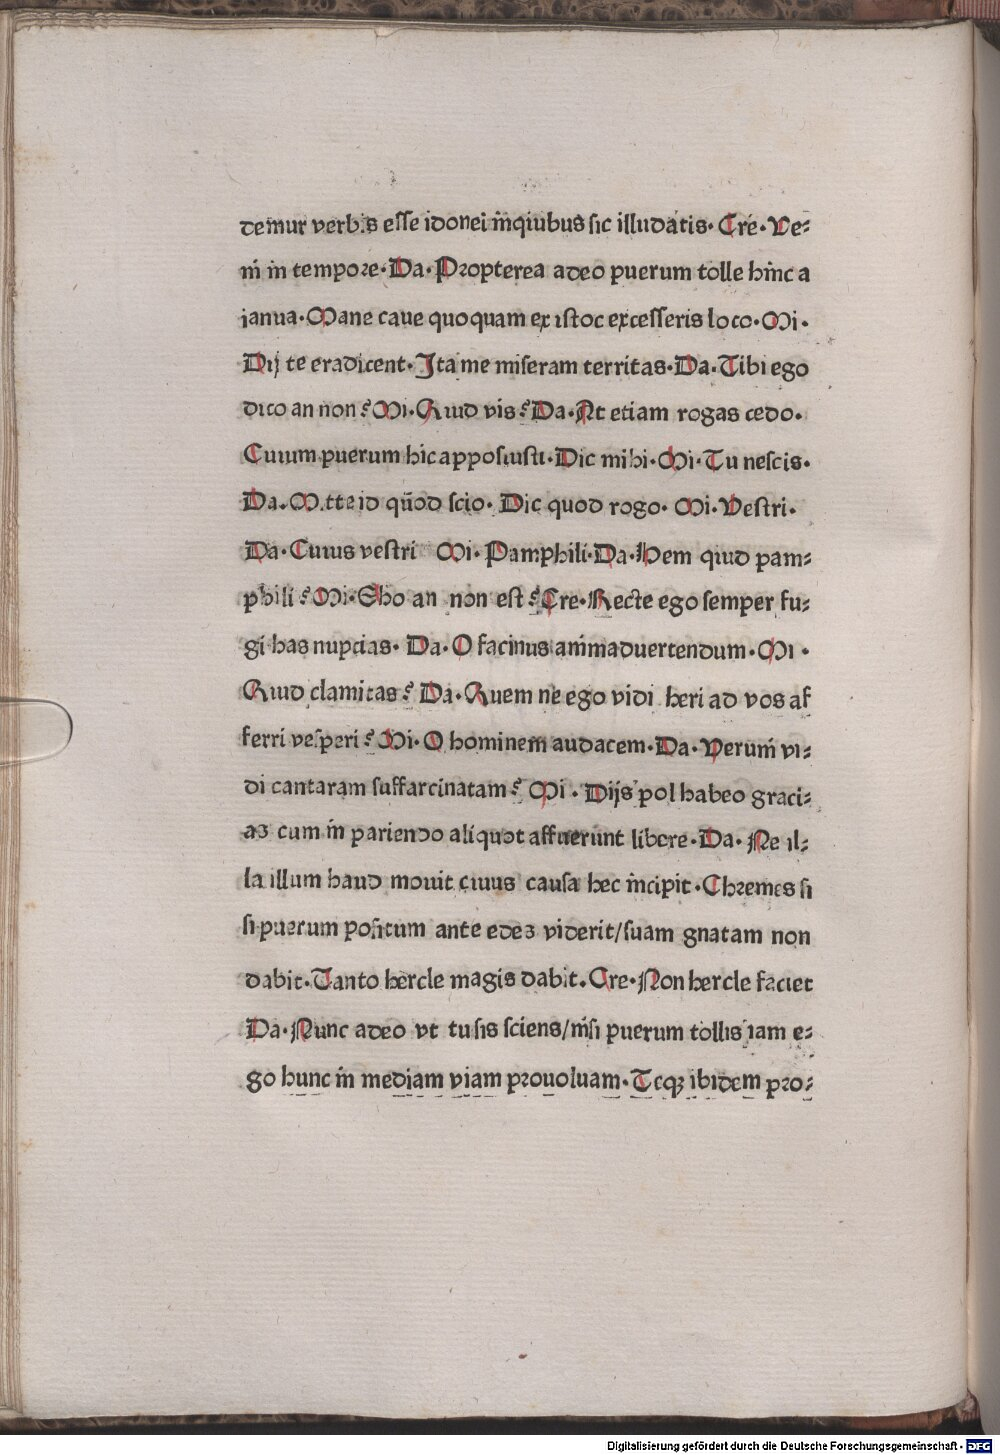 demur verbis esse idonei inquibus sic illudatis. Cre. Ve⸗
ni in tempore. Da. Propterea adeo puerum tolle hinc a
ianua. Mane caue quoquam ex istoc excesseris loco. Mi.
Dij te eradicent. Ita me miseram territas. Da. Tibi ego
dico an non? Mi. Quid vis? Da. At etiam rogas cedo.
Cuium puerum hic apposuisti. Dic mihi. Mi. Tu nescis.
Da. Mitte id quod scio. Dic quod rogo. Mi. Vestri.
Da. Cuius vestri Mi. Pamphili. Da. Hem quid pam⸗
phili? Mi. Eho an non est? Cre. Recte ego semper fu⸗
gi has nupcias. Da. O facinus animaduertendum. Mi.
Quid clamitas? Da. Quem ne ego vidi heri ad vos af
ferri vesperi? Mi. O hominem audacem. Da. Verum vi⸗
di cantaram suffarcinatam? Mi. Dijs pol habeo graci⸗
aʒ cum in pariendo aliquot affuerunt libere. Da. Ne il⸗
la illum haud mouit cuius causa hec incipit. Chremes si
si puerum positum ante edeʒ viderit/suam gnatam non
dabit. Tanto hercle magis dabit. Cre. Non hercle faciet
Da. Nunc adeo vt tu sis sciens/nisi puerum tollis iam e⸗
go hunc in mediam viam prouoluam. Teqꝫ ibidem pro⸗
Digitalisierung gefördert durch die Deutsche Forschungsgemeinschaft - DFG